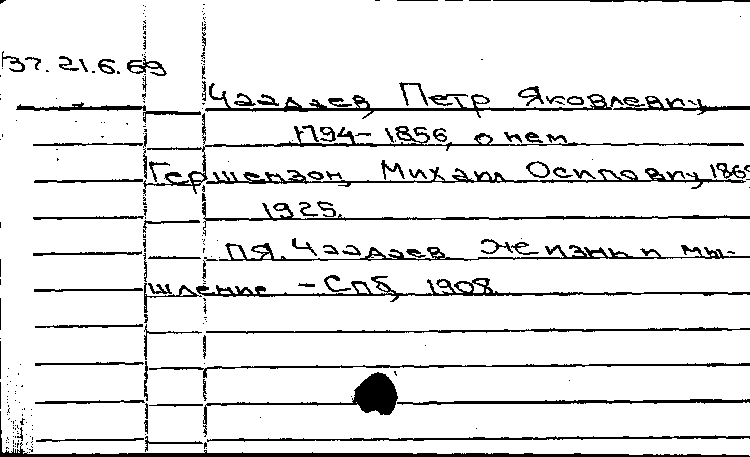 37.21.6.69
Чаадаев, Петр Яковлевич
1794-1856, о нем.
Гершензон, Михаил Осипович, 1869
1925.
П.Я. Чаадаев Жизнь и мы-
шление. - СПб, 1908.